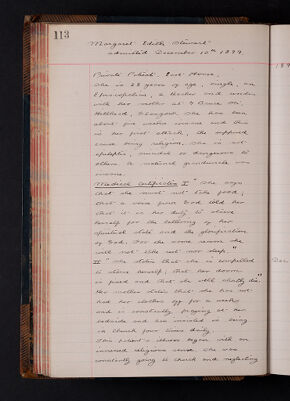 113
Margaret Edith Stewart
admitted December 10th 1899.
189
Private Patient. East House.
She is 28 years of age, single, an
Episcopalian, a teacher and resides
with her mother at 7 Bruce
Hillhead, Glasgow. She has been
about five weeks insane and this
is her first attack, the supposed
cause being religion. She is not
epileptic, suicidal or dangerous to
others. A maternal grandaunt was
insane.
Medical Certificates I" She says
that she must not take food;
that a voice from God told her
that it is her duty to starve
herself for the bettering of her
spiritual state and the glorification
of God. For the same reason she
will not
II" She states that she is compelled
to starve herself; that her doom
is fixed and that she will shortly die."
Dec.
Her mother states that she has not
had her clothes off for a week
and is constantly praying at her
bedside and has insisted in being
in church four times daily.
This patient's illness began with an
increased religious sense. She was
constantly going to church and neglecting